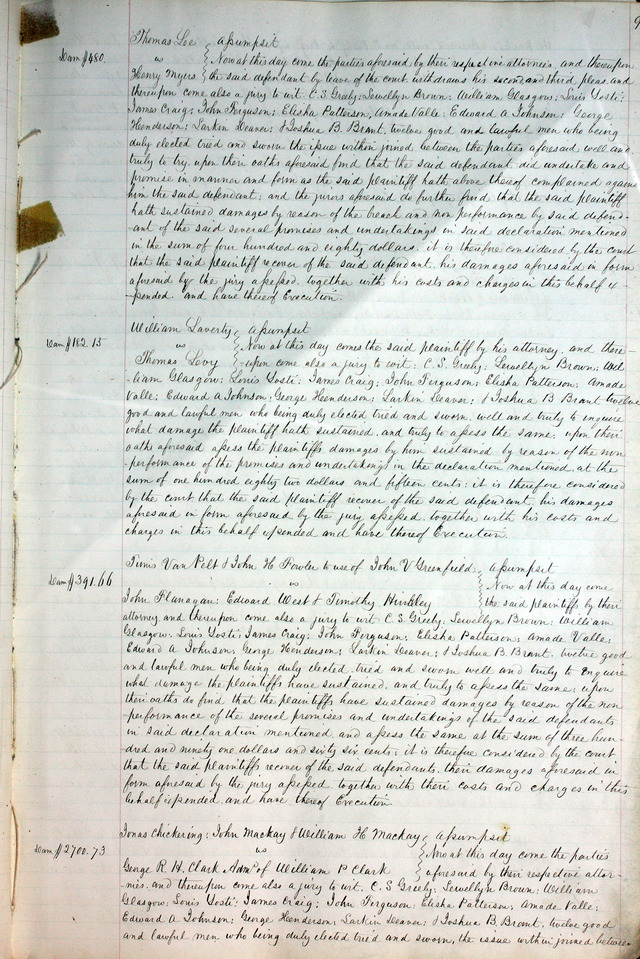 Thomas Lee } assumpsit
Dam $480. vs } Now at this day come the parties aforesaid by their respective attornies, and thereupon
Henry Myers } the said defendant by leave of the court withdraws his second and third pleas, and
thereupon come also a jury to wit: C. S. Greely; Lewellyn Brown; William Glasgow; Louis Yosti;
James Craig; John Ferguson; Elisha Patterson; Amade Valle; Edward A Johnson; George
Henderson; Larkin Deaver; & Joshua B. Brant, twelve good and lawful men who being
duly elected tried and sworn the issue within joined between the parties aforesaid, well and
truly to try, upon their oaths aforesaid find that the said defendant did undertake and
promise in manner and form as the said plaintiff hath above thereof complained against
him the said defendant; and the jurors aforesaid do further find that the said plaintiff
hath sustained damages by reason of the breach and non performance by said defend-
-ant of the said several promises and undertakings in said declaration mentioned
in the sum of four hundred and eighty dollars. it is therefore considered by the court
that the said plaintiff recover of the said defendant, his damages aforesaid in form
aforesaid by the jury assessed, together with his costs and charges in this behalf ex-
-pended, and have thereof Execution.
William Laverty } assumpsit
Dam $182.15 vs } Now at this day comes the said plaintiff by his attorney, and there-
Thomas Levy } -upon come also a jury to wit: C. S. Greely; Lewellyn Brown; Wil-
-liam Glasgow; Louis Yosti; James Craig; John Ferguson; Elisha Patterson; Amade
Valle; Edward A Johnson; George Henderson; Larkin Deaver; & Joshua B Brant twelve
good and lawful men who being duly elected tried and sworn, well and truly to inquire
what damage the plaintiff hath sustained, and truly to assess the same, upon their
oaths aforesaid assess the plaintiffs damages by him sustained by reason of the non
performance of the promises and undertakings in the declaration mentioned at the
sum of one hundred eighty two dollars and fifteen cents; it is therefore considered
by the court that the said plaintiff recover of the said defendant, his damages
aforesaid in form aforesaid by the jury assessed, together with his costs and
charges in this behalf expended and have thereof Execution.
Tunis Van Pelt & John H Fowler to use of John V Greenfield } assumpsit
Dam $391.66 vs } Now at this day come
John Flanagan; Edward West & Timothy Hinkley } the said plaintiffs by their
attorney, and thereupon come also a jury to wit: C. S. Greely; Lewellyn Brown; William
Glasgow; Louis Yosti; James Craig; John Ferguson; Elisha Patterson; Amade Valle;
Edward A Johnson; George Henderson; Larkin Deaver; & Joshua B. Brant, twelve good
and lawful men who being duly elected, tried and sworn well and truly to enquire
what damage the plaintiffs have sustained, and truly to assess the same, upon
their oaths do find that the plaintiffs have sustained damages by reason of the non
performance of the several promises and undertakings of the said defendants
in said declaration mentioned and assess the same at the sum of three hun-
dred and ninety one dollars and sixty six cents; it is therefore considered by the court
that the said plaintiffs recover of the said defendants, their damages aforesaid in
form aforesaid by the jury assessed together with their costs and charges in this
behalf expended, and have thereof Execution
Jonas Chickering; John Mackay & William H Mackay } assumpsit
Dam $2700.73 vs } Now at this day come the parties
George R. H. Clark, Admr. of William P Clark } aforesaid by their respective attor-
-nies, and thereupon come also a jury to wit: C. S. Greely; Lewellyn Brown; William
Glasgow; Louis Yosti; James Craig; John Ferguson; Elisha Patterson; Amade Valle;
Edward A Johnson; George Henderson; Larkin Deaver; & Joshua B. Brant, twelve good
and lawful men who being duly elected tried and sworn, the issue within joined between